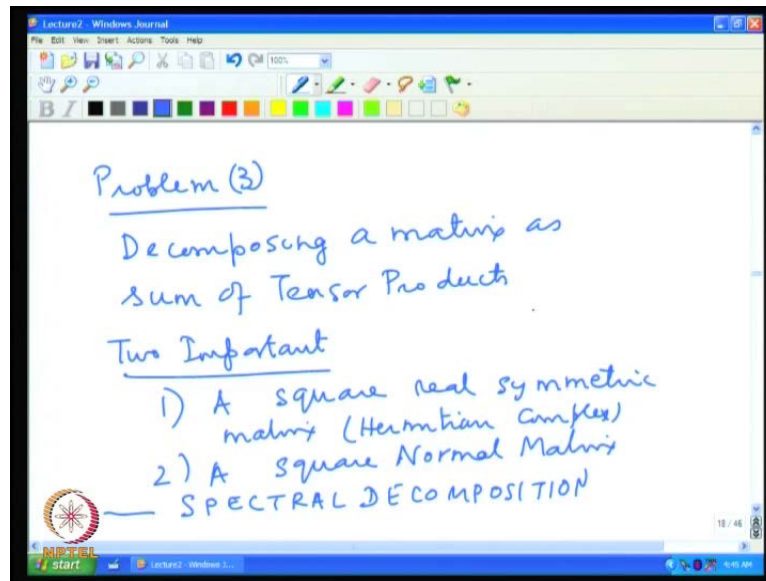 Lecture2 - Windows Journal
File Edit View Insert Actions Tools Help
100%
B I
Problem (3)
Decomposing a matrix as
sum of Tensor Products
Two Important
1) A square real symmetric
matrix (Hermitian Complex)
2) A square Normal Matrix
SPECTRAL DECOMPOSITION
18 / 46
NPTEL
start Lecture2 - Windows J... 4:45 AM